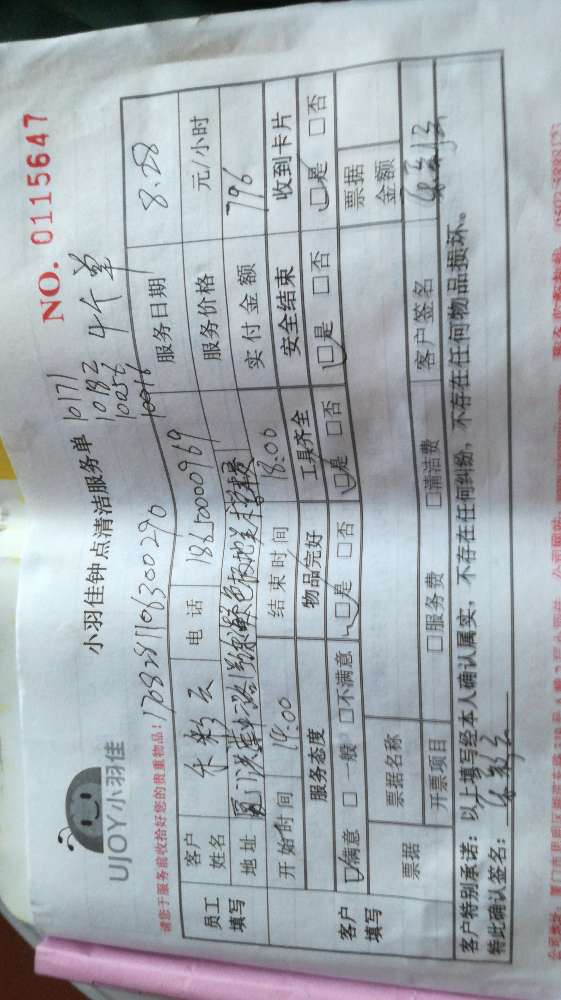 UJOY小羽佳
小羽佳钟点清洁服务单
NO. 0115647
10171
10182
10056
4个单
请您于服务前收拾好您的贵重物品!
170828110630029
员工填写
客户姓名
电话 18650000969
服务日期 8.28
地址
服务价格 元/小时
开始时间 14:00
结束时间 18:00
实付金额 796
服务态度 物品完好 工具齐全 安全结束 收到卡片
客户填写
□满意 □一般 □不满意 □是 □否 □是 □否 □是 □否 □是 □否
票据 票据名称 票据金额
开票项目 □服务费 □清洁费 客户签名
客户特别承诺:以上填写经本人确认属实,不存在任何纠纷,不存在任何物品损坏。
特此确认签名: